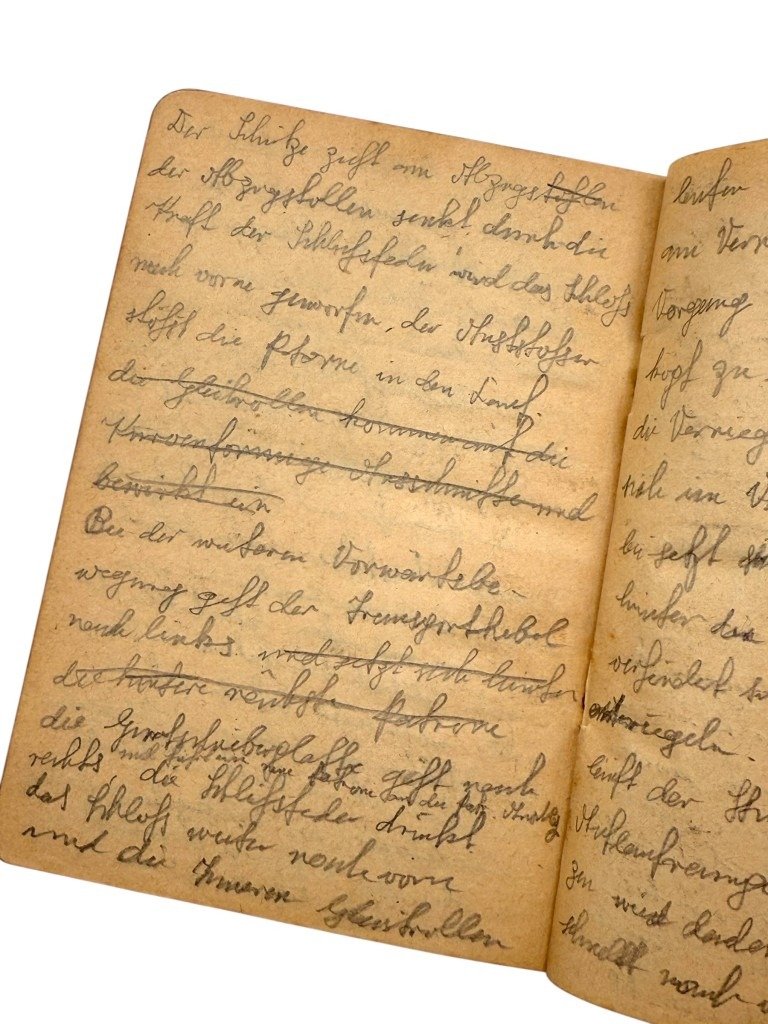 Der Schütze zieht am Abzugstollen
der Abzugstollen senkt, durch die
Kraft der Schließfeder wird das Schloß
nach vorne geworfen, der Ausstosser
stößt die Patrone in den Lauf.
die Gleitrollen kommen auf die
Kurvenförmige Ausschnitte und
bewirkt ein
Bei der weiteren Vorwärtsbe-
wegung geht der Transporthebel
nach links und setzt sich hinter
die hintere nächste Patrone
die Gurtschieberplatte geht nach
rechts, und führt eine neue Patrone an die
die Schließfeder drückt
das Schloß weiter nach vorn
und die Inneren Gleitrollen
laufen
am Verr
Vorgang
kopf zu
die Verrieg
sich im V
bei setzt
hinter den
verhindert
entriegeln.
läuft der
Auflauframpe
zen wird dadur
schnellt nach